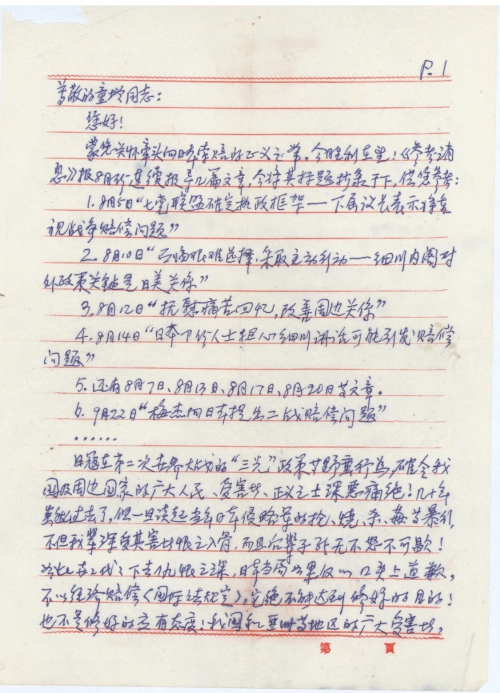 P.1
尊敬的童增同志：
您好！
蒙您关怀牵头向日本索赔的正义之举，今胜利在望！《参考消
息》报8月份连续报导几篇文章，今将其标题抄录于下，供您参考：
1. 8月5日“七党联盟确定执政框架——下届议长表示将重
视战争赔偿问题”
2. 8月10日“ 艰难选择，采取主动行动——细川内阁对
外政策关键是日美关系”
3. 8月12日“抚慰痛苦回忆，改善周边关系”
4. 8月14日“日本 人士担心细川讲话可能引发赔偿
问题”
5. 还有8月7日、8月13日、8月17日、8月20日等文章。
6. 9月22日“梅杰向日本提出二战赔偿问题”
……
日寇在第二次世界大战的“三光”政策等野蛮行为，确令我
国及周边国家的广大人民、受害者、正义之士深恶痛绝！几十年
虽然过去了，但一旦谈起当年日军侵略华的抢、烧、杀、 等暴行，
不但我辈深受其害者恨之入骨，而且后辈子孙无不怒不可歇！
 下去仇恨之深，日本当局如果仅以口头上道歉，
不以经济赔偿（国际法规定），完全不能达到修好的目的！
也不是修好的应有态度！我国和亚洲等地区的广大受害者，
第 頁